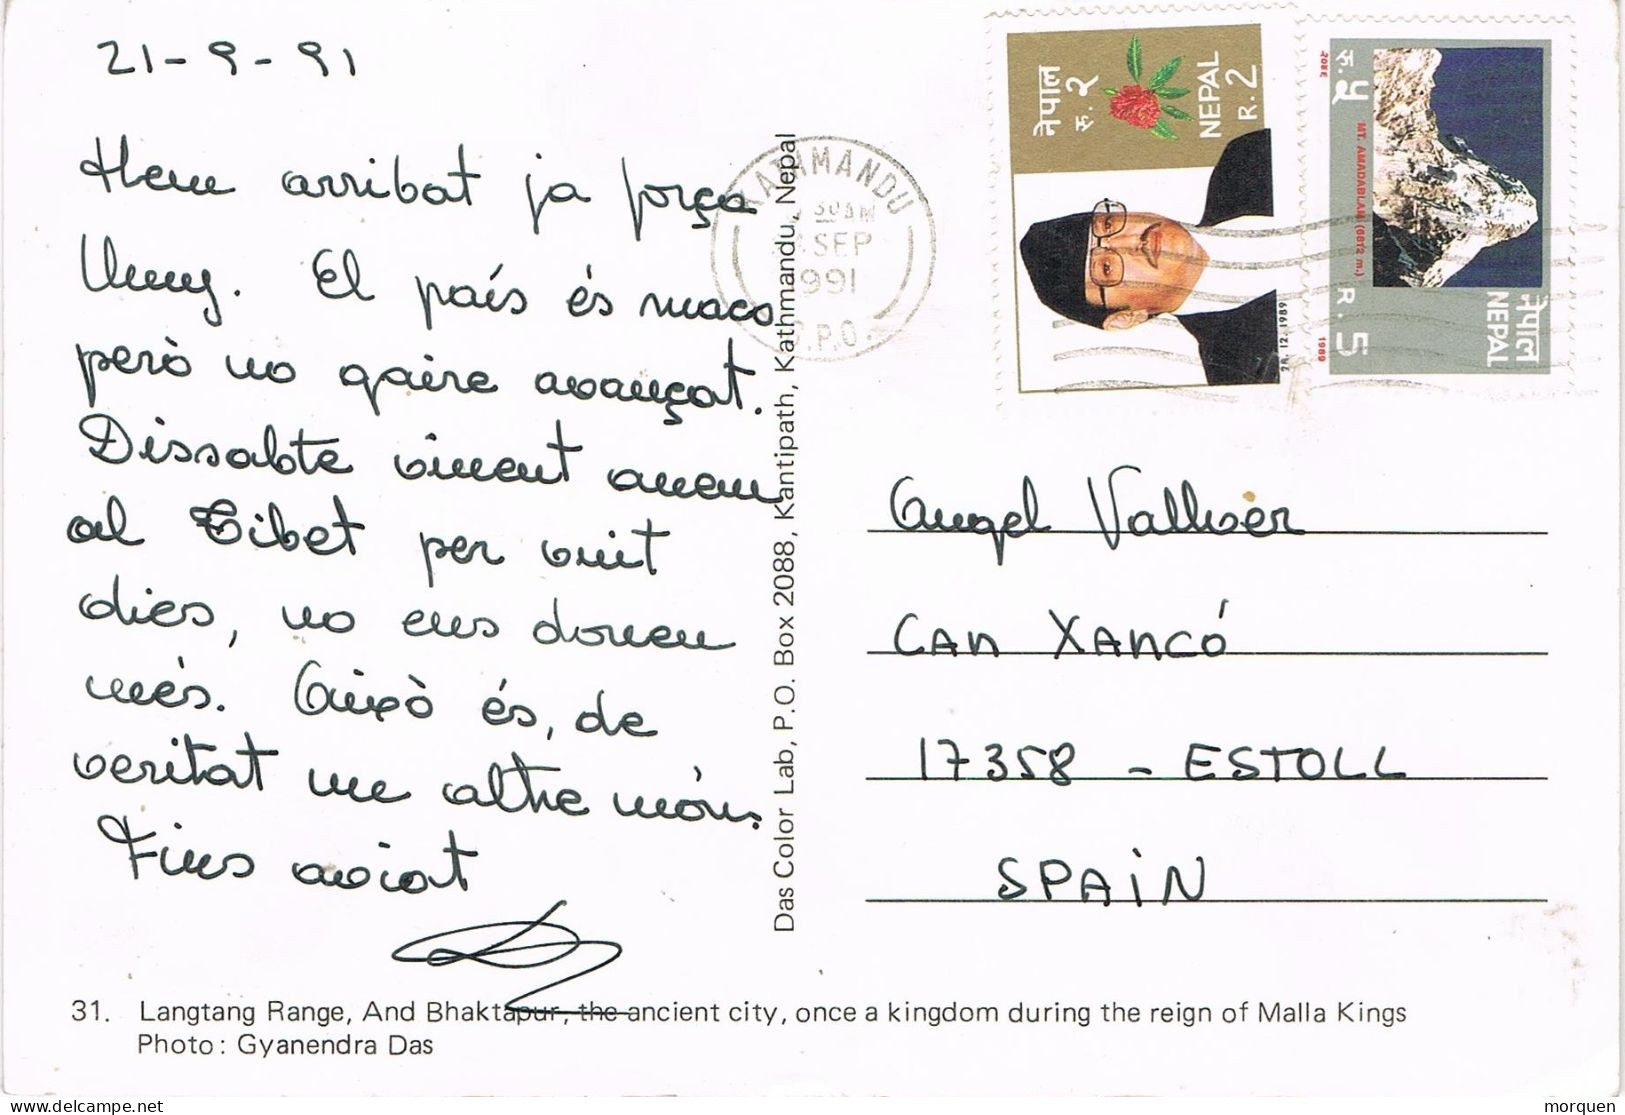 21-9-91
Hem arribat ja força
lluny. El país és maco
però no gaire avançat.
Dissabte vinent anem
al Tibet per vuit
dies, no ens donen
més. Això és, de
veritat un altre món.
Fins aviat
Das Color Lab, P.O. Box 2088, Kantipath, Kathmandu, Nepal
KATHMANDU
SEP
1991
G.P.O.
नेपाल
रु. २
NEPAL
R. 2
29.12.1989
रु. ५
2046
MT. AMADABLAM (6812 m.)
R. 5
1989
नेपाल
NEPAL
Angel Vallver
CAN XANCÓ
17358 - ESTOLL
SPAIN
31. Langtang Range, And Bhaktapur, the ancient city, once a kingdom during the reign of Malla Kings
Photo: Gyanendra Das
delcampe.net
morquen